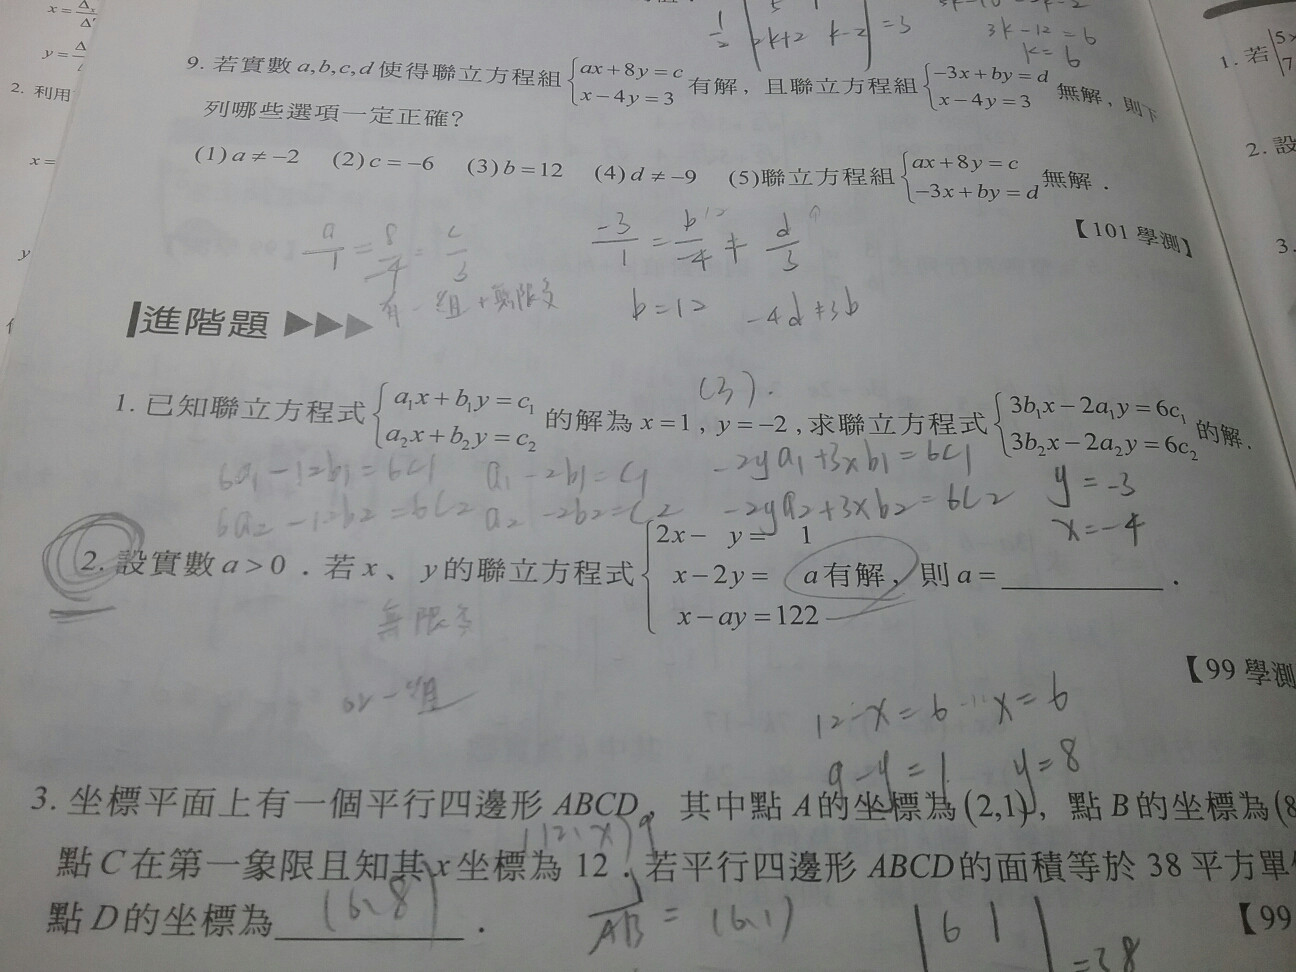 x=Δx/Δ
y=Δ
2. 利用
x=
y
1/2 |2k+2 k-2| =3
3k-12=6
k=6
9. 若實數 a,b,c,d 使得聯立方程組 {ax+8y=c, x-4y=3 有解，且聯立方程組 {-3x+by=d, x-4y=3 無解，則下
列哪些選項一定正確？
(1) a≠-2 (2) c=-6 (3) b=12 (4) d≠-9 (5)聯立方程組 {ax+8y=c, -3x+by=d 無解．
【101 學測】
a/1 = 8/-4 = c/3
-3/1 = b/-4 ≠ d/3
有一組+無限多
b=12 -4d≠3b
進階題
(3).
1. 已知聯立方程式 {a₁x+b₁y=c₁, a₂x+b₂y=c₂ 的解為 x=1, y=-2, 求聯立方程式 {3b₁x-2a₁y=6c₁, 3b₂x-2a₂y=6c₂ 的解.
6a1-12b1=6c1 a1-2b1=c1 -2ya1+3xb1=6c1 y=-3
6a2-12b2=6c2 a2-2b2=c2 -2ya2+3xb2=6c2 x=-4
2. 設實數 a>0．若 x、y的聯立方程式 {2x- y= 1, x-2y= a, x-ay=122 有解，則 a=________．
無限多
一組
【99 學測
12-x=6 x=6
9-y=1 y=8
3. 坐標平面上有一個平行四邊形 ABCD，其中點 A 的坐標為 (2,1)，點 B 的坐標為 (8
(12-x, 9
點 C 在第一象限且知其 x 坐標為 12．若平行四邊形 ABCD 的面積等於 38 平方單
點 D 的坐標為 (6,8)．
AB = (6,1)
【99
|6 1
=38
1. 若 |5x
7
2. 設
3.